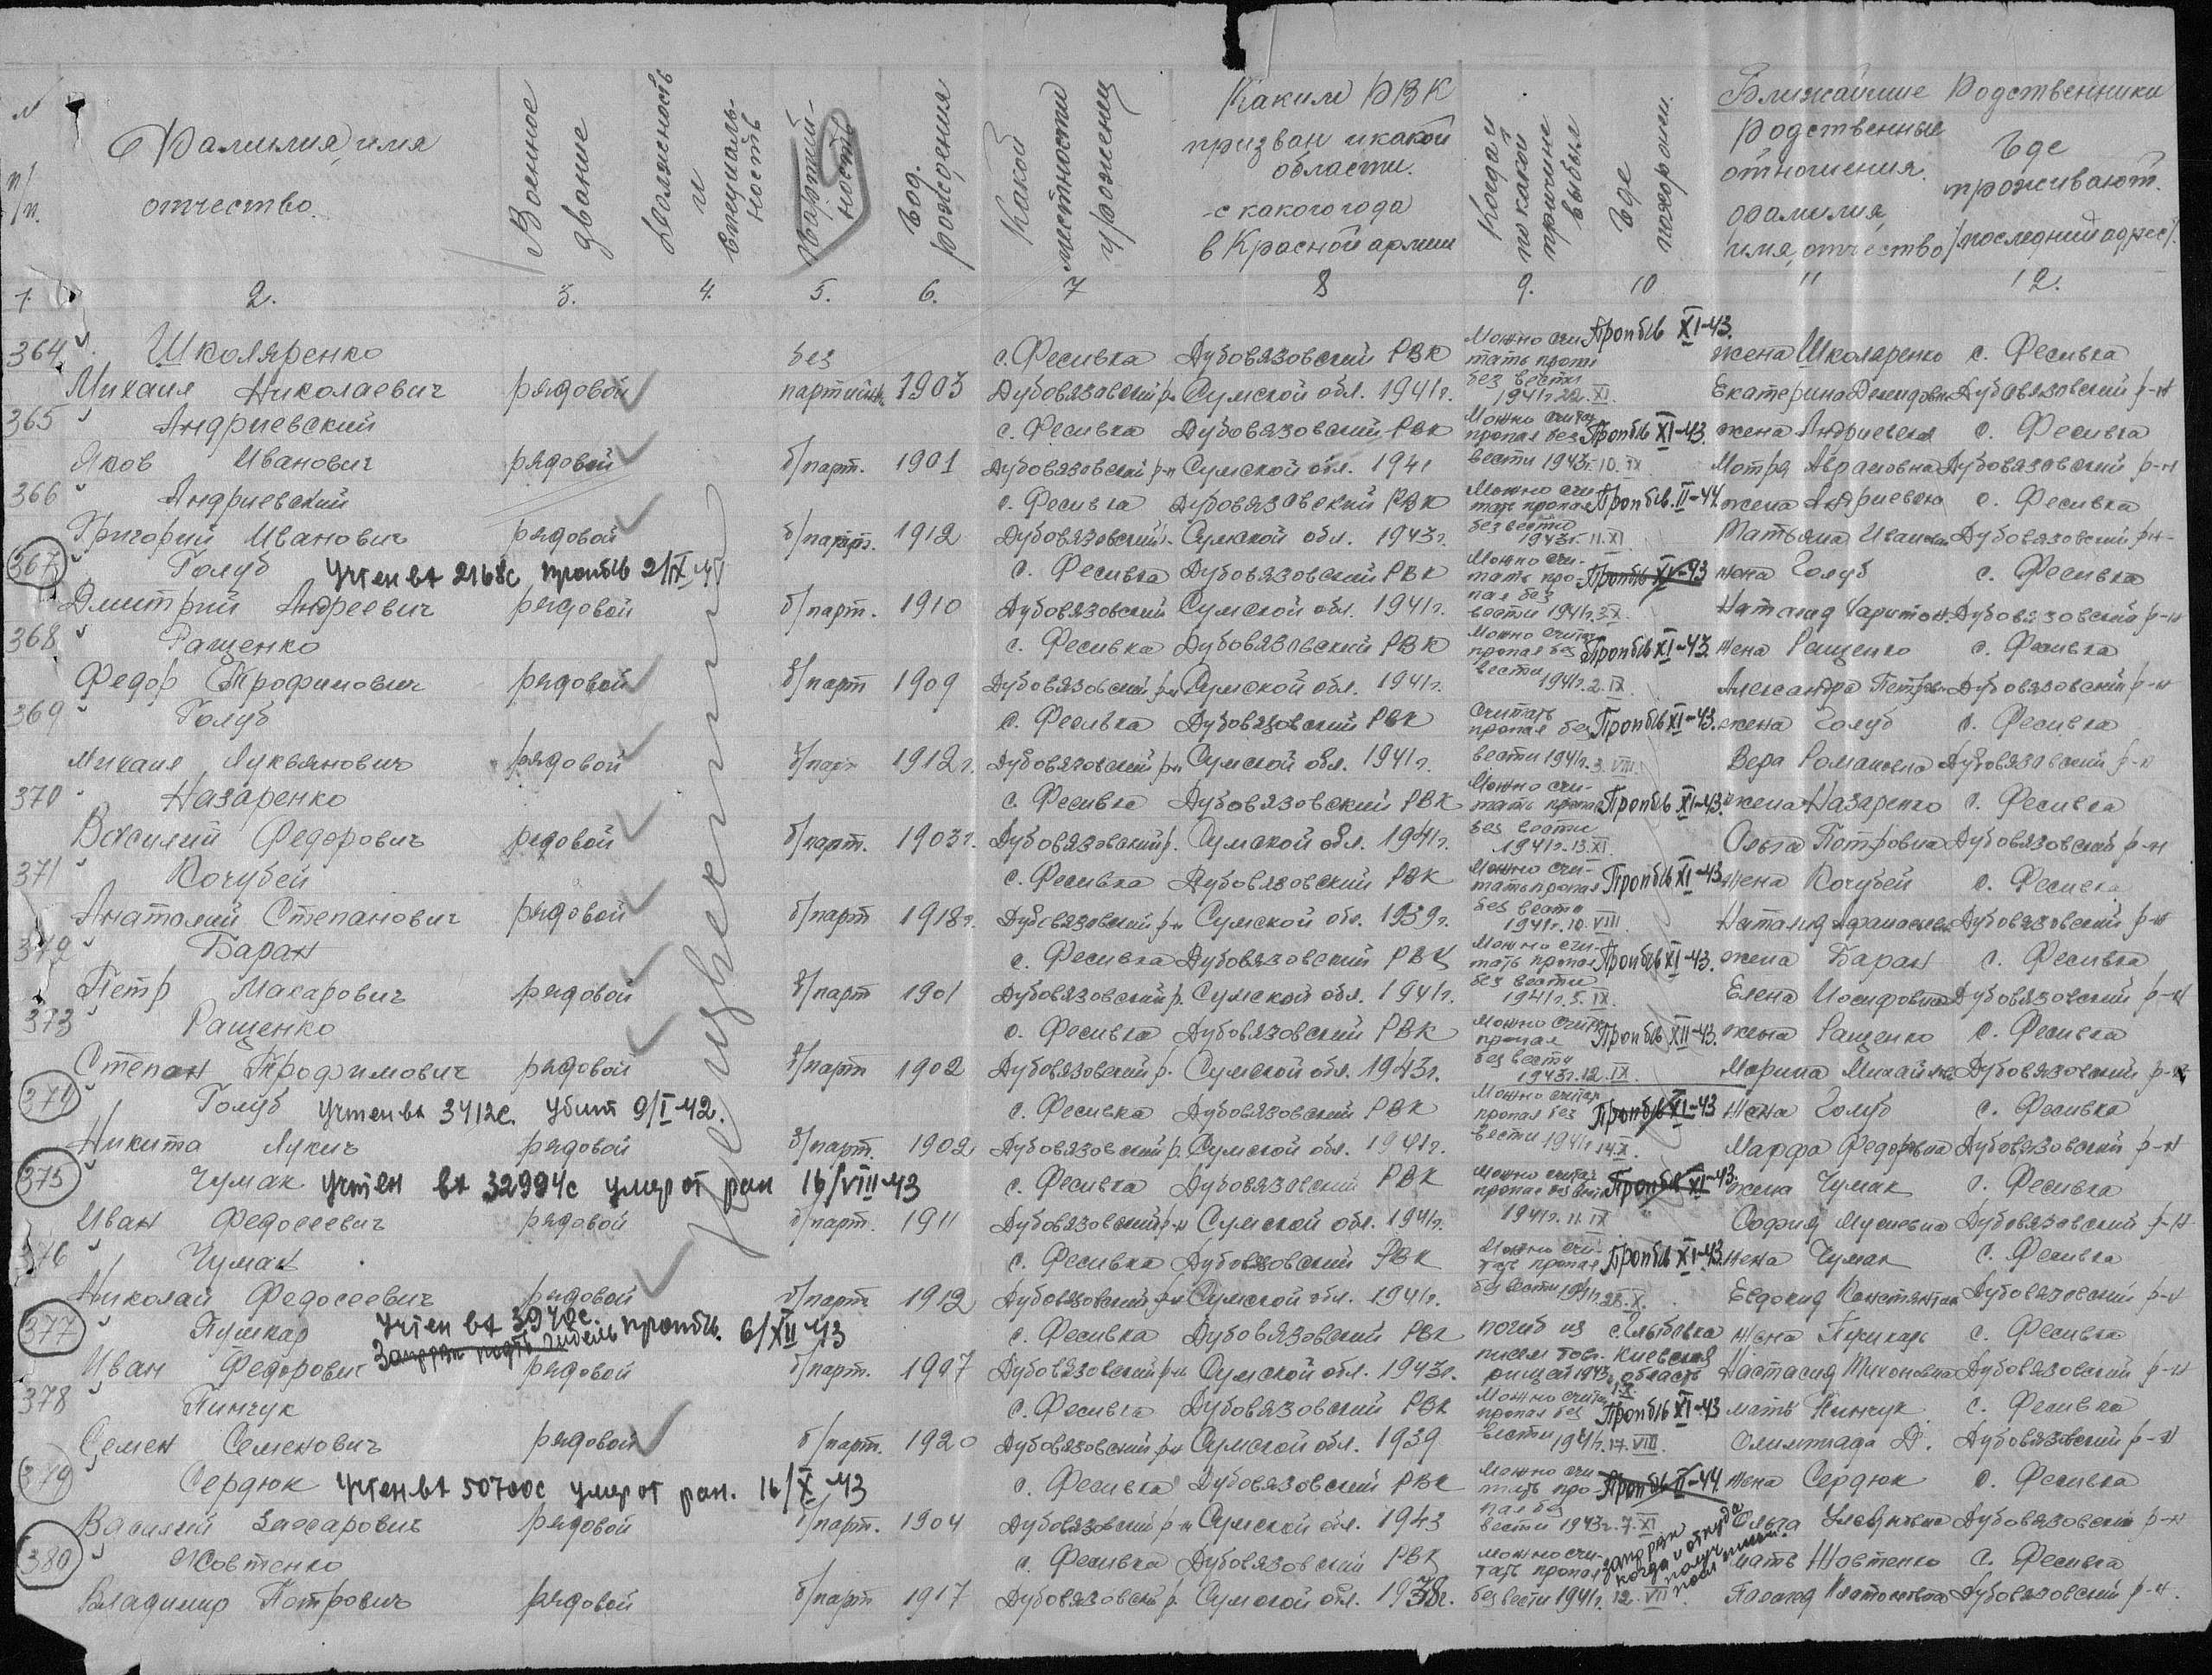 № п/п.
Фамилия, имя отчество.
Военное звание
Должность и специальность
Партийность
Год. рождения
Какой местности уроженец
Каким РВК призван и какой области. с какого года в Красной армии
Когда и по какой причине выбыл
Где похоронен.
Ближайшие Родственники
Родственные отношения. фамилия, имя, отчество
Где проживают. /последний адрес/.
1. 2. 3. 4. 5. 6. 7 8 9. 10 11 12.
364 Школяренко без с. Фесивка Дубовязовский РВК Можно счи- Проп б/в XI-43. жена Школяренко с. Фесивка
Михаил Николаевич рядовой партийн. 1903 Дубовязовский р-н Сумской обл. 1941г. тать пропал без вести 1941г. XI. Екатерина Демидовн. Дубовязовский р-н
365 Андриевский с. Фесивка Дубовязовский РВК Можно считать пропал без Проп б/в XI-43. жена Андриевская с. Фесивка
Яков Иванович рядовой б/парт. 1901 Дубовязовский р-н Сумской обл. 1941 вести 1943г. 10. IX Мотря Аврамовна Дубовязовский р-н
366 Андриевский с. Фесивка Дубовязовский РВК Можно счи- тать пропал Проп б/в. II-44. жена Андриевская с. Фесивка
Григорий Иванович рядовой б/парт. 1912 Дубовязовский Сумской обл. 1943г. без вести 1943г. 11. XI. Татьяна Ивановн Дубовязовский р-н
367 Голуб Учтен вх 2168с проп б/в 2/IX-41 с. Фесивка Дубовязовский РВК Можно счи- тать про- Проп б/в XI-43 жена Голуб с. Фесивка
Дмитрий Андреевич рядовой б/парт. 1910 Дубовязовский Сумской обл. 1941г. пал без вести 1941г. Наталия Харитон. Дубовязовский р-н
368 Ращенко с. Фесивка Дубовязовский РВК Можно считать пропал без Проп б/в XI-43. жена Ращенко с. Фесивка
Федор Трофимович рядовой б/парт 1909 Дубовязовский р-н Сумской обл. 1941г. вести 1941г. 2. IX. Александра Петровн. Дубовязовский р-н
369 Голуб с. Фесивка Дубовязовский РВК Считать пропал без Проп б/в XI-43. жена Голуб с. Фесивка
Михаил Лукьянович рядовой б/парт 1912г. Дубовязовский р-н Сумской обл. 1941г. вести 1941г. 3. VIII. Вера Романовна Дубовязовский р-н
370 Назаренко с. Фесивка Дубовязовский РВК Можно счи- тать пропал Проп б/в XI-43. жена Назаренко с. Фесивка
Василий Федорович рядовой б/парт. 1903г. Дубовязовский р. Сумской обл. 1941г. без вести 1941г. 13. XI. Ольга Петровна Дубовязовский р-н
371 Кочубей с. Фесивка Дубовязовский РВК Можно счи- тать пропал Проп б/в XI-43 жена Кочубей с. Фесивка
Анатолий Степанович рядовой б/парт 1918г. Дубовязовский р-н Сумской обл. 1939г. без вести 1941г. 10. VIII Наталия Афанасьевн Дубовязовский р-н
372 Баран с. Фесивка Дубовязовский РВК Можно счи- тать пропал Проп б/в XI-43. жена Баран с. Фесивка
Петр Макарович рядовой б/парт 1901 Дубовязовский р. Сумской обл. 1941г. без вести 1941г. 5. IX. Елена Иосифовна Дубовязовский р-н
373 Ращенко с. Фесивка Дубовязовский РВК Можно считать пропал Проп б/в XII-43. жена Ращенко с. Фесивка
Степан Трофимович рядовой б/парт 1902 Дубовязовский р. Сумской обл. 1943г. без вести 1943г. 12. IX. Марина Михайловн Дубовязовский р-н
374 Голуб Учтен вх 3412с. Убит 9/I-42. с. Фесивка Дубовязовский РВК Можно считать пропал без Проп б/в XI-43 жена Голуб с. Фесивка
Никита Лукич рядовой б/парт. 1902 Дубовязовский р. Сумской обл. 1941г. вести 1941г 14. X. Марфа Федоровна Дубовязовский р-н
375 Чумак Учтен вх 32994с умер от ран 16/VIII-43 с. Фесивка Дубовязовский РВК Можно считать пропал без вести Проп б/в XI-43. жена Чумак с. Фесивка
Иван Федосеевич рядовой б/парт. 1911 Дубовязовский р-н Сумской обл. 1941г. 1941г. 11. IX София Дубовязовский р-н
376 Чумак с. Фесивка Дубовязовский РВК Можно счи- тать пропал Проп б/в XI-43. жена Чумак с. Фесивка
Николай Федосеевич рядовой б/парт. 1912 Дубовязовский р-н Сумской обл. 1941г. без вести 1941г. 28. X. Евдокия Константин Дубовязовский р-н
377 Пушкар Учтен вх 3940с. проп б/в. 6/XII-43 с. Фесивка Дубовязовский РВК погиб из писем тов- с. Киевская жена Пушкарь с. Фесивка
Иван Федорович рядовой б/парт. 1907 Дубовязовский р-н Сумской обл. 1943г. рищей 1943г. область Настасия Тихоновна Дубовязовский р-н
378 Пинчук с. Фесивка Дубовязовский РВК Можно считать пропал без Проп б/в XI-43 мать Пинчук с. Фесивка
Семен Семенович рядовой б/парт. 1920 Дубовязовский р-н Сумской обл. 1939 вести 1941г. 17. VIII. Олимпиада Д. Дубовязовский р-н
379 Сердюк Учтен вх 50700с умер от ран. 16/X-43 с. Фесивка Дубовязовский РВК Можно счи- тать про- Проп б/в II-44. жена Сердюк с. Фесивка
Василий Захарович рядовой б/парт. 1904 Дубовязовский р-н Сумской обл. 1943 пал без вести 1943г. 7. XI Ольга Дубовязовский р-н
380 Жовтенко с. Фесивка Дубовязовский РВК можно счи- тать пропал мать Жовтенко с. Фесивка
Владимир Петрович рядовой б/парт 1917 Дубовязовский р. Сумской обл. 1938г. без вести 1941г. 12. VII Платоновна Дубовязовский р-н.
запрязн когда и откуда получ письм.
Не извещены